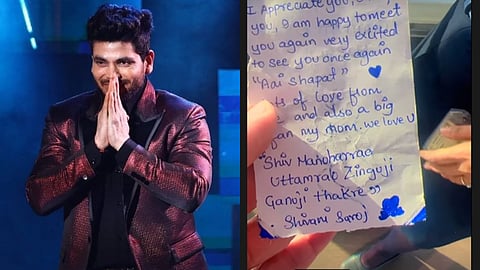 I Appreciate you,
you, I am happy to meet
you again very excited
to see you once again
"Aai shapat"
of love from
and also a big
fan my mom. we love u
Shiv Manoharrao
Uttamrao Zinguji
Ganuji Thakre"
- Shivani Saroj